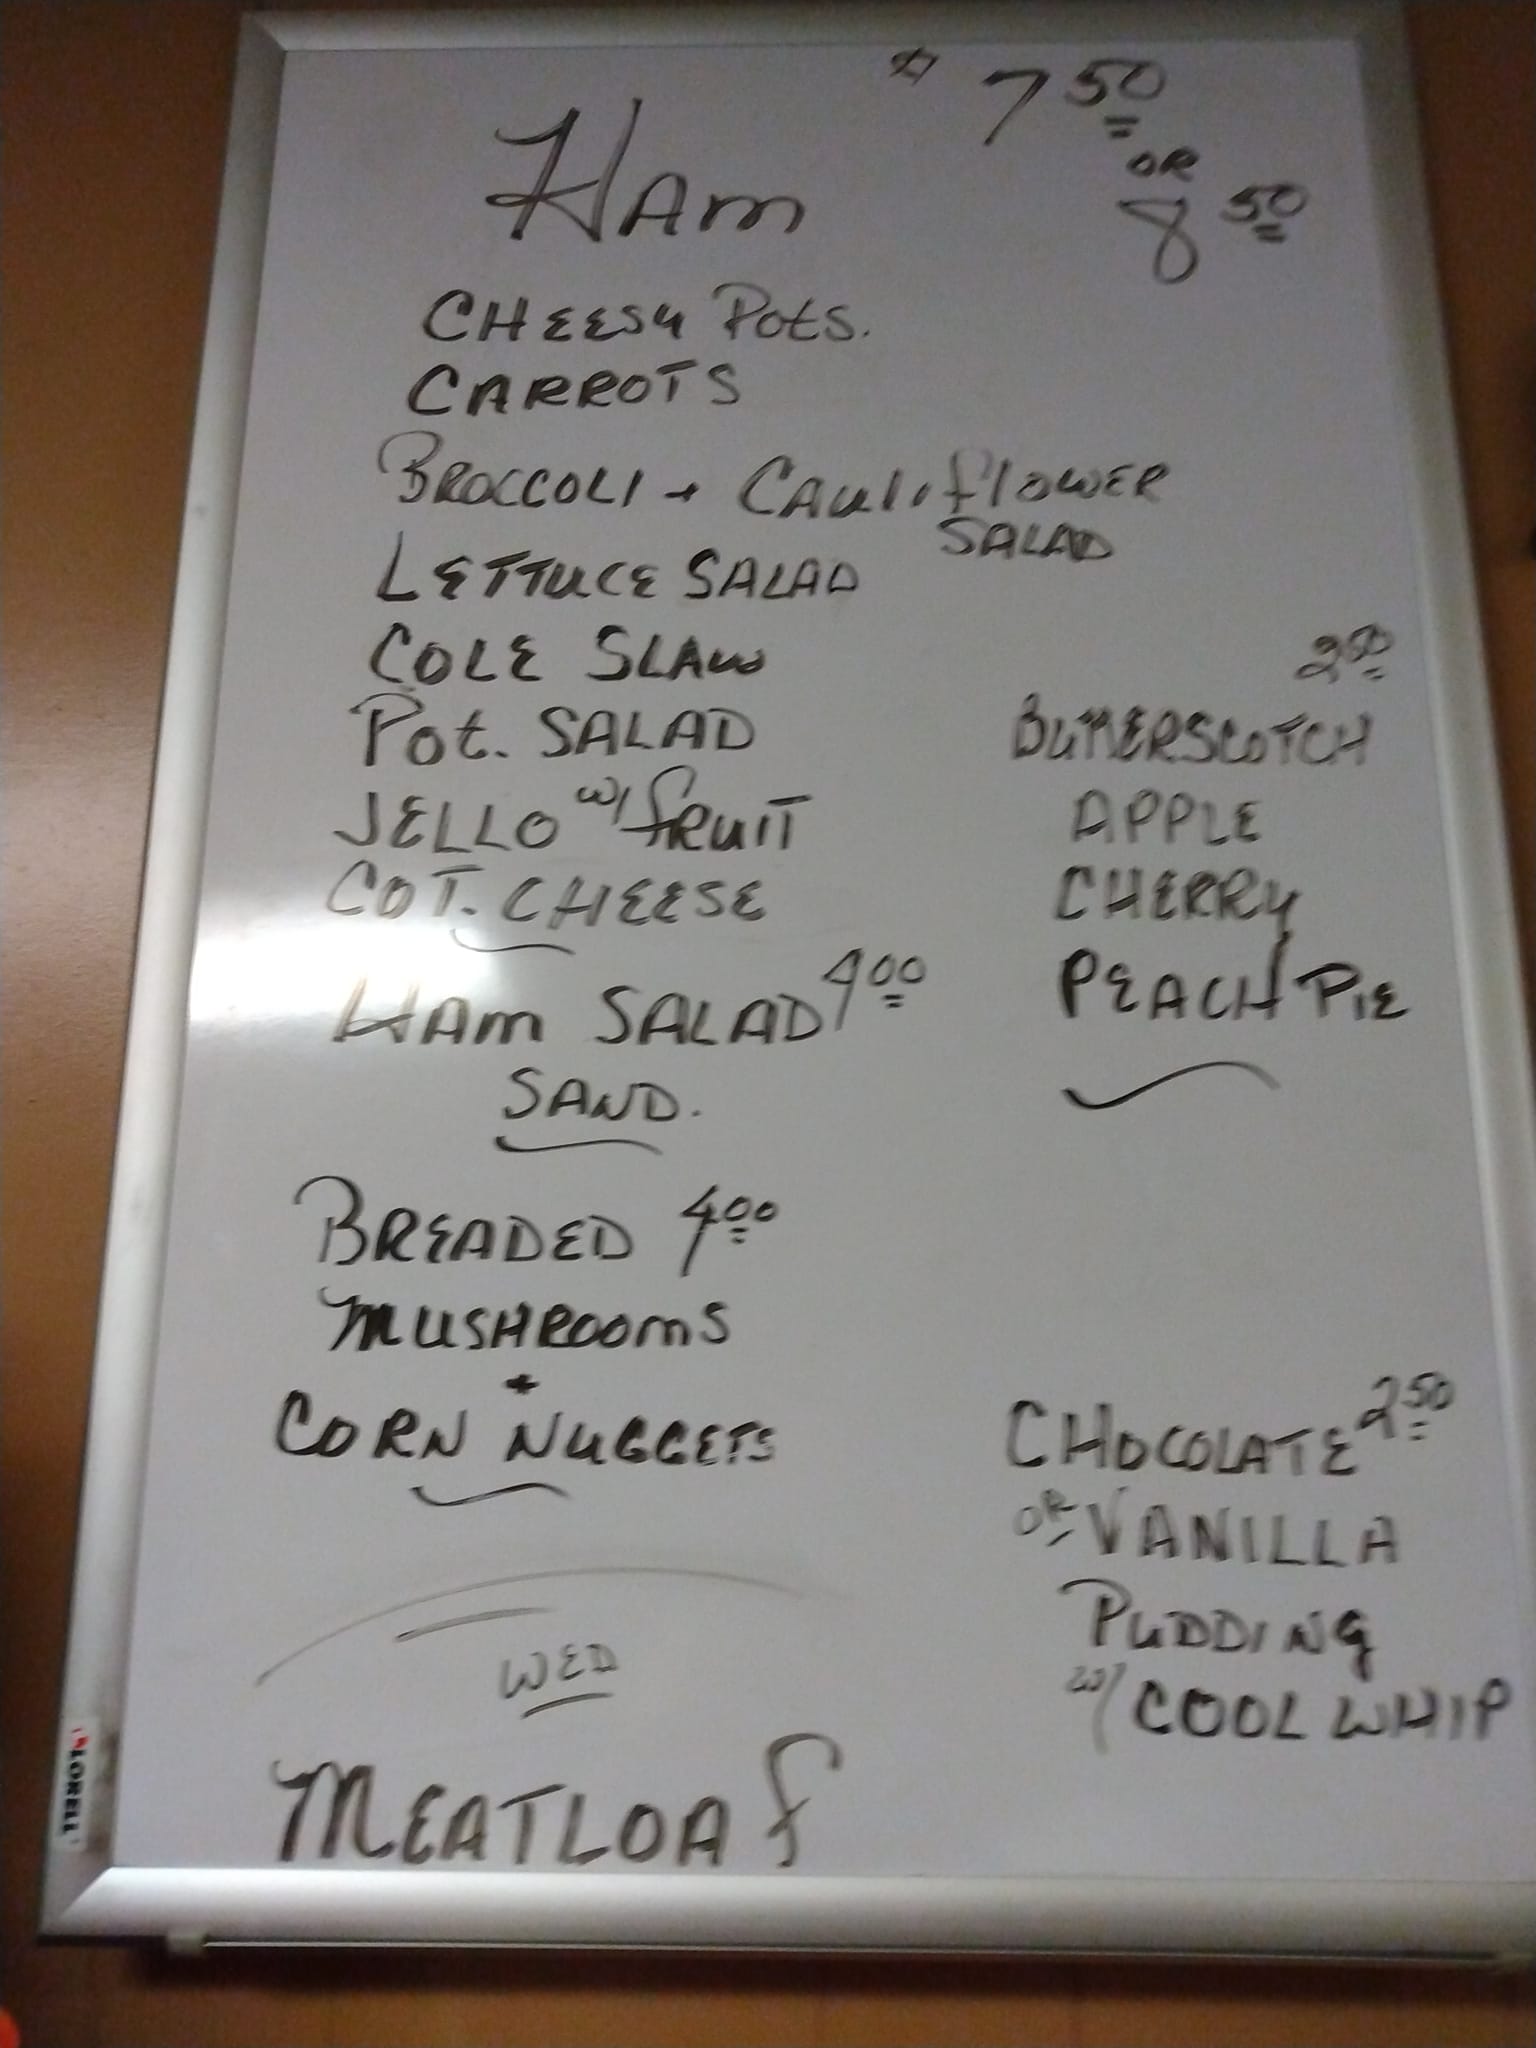 $ 7 50
OR
8 50
HAm
CHEESY Pots.
CARROTS
BROCCOLI + CAuliflOWER
SALAD
LETTUCE SALAD
COLE SLAw
Pot. SALAD
JELLO w/ fRuIT
COT. CHEESE
HAm SALAD 4 00
SAND.
BREADED 4 00
MUSHROOmS
+
CORN NUGGETS
WED
MEATLOAf
2 50
BUTTERSCOTCH
APPLE
CHERRY
PEACH PIE
CHOCOLATE 2 50
OR VANILLA
PUDDINg
w/ COOL WHIP
LORELL